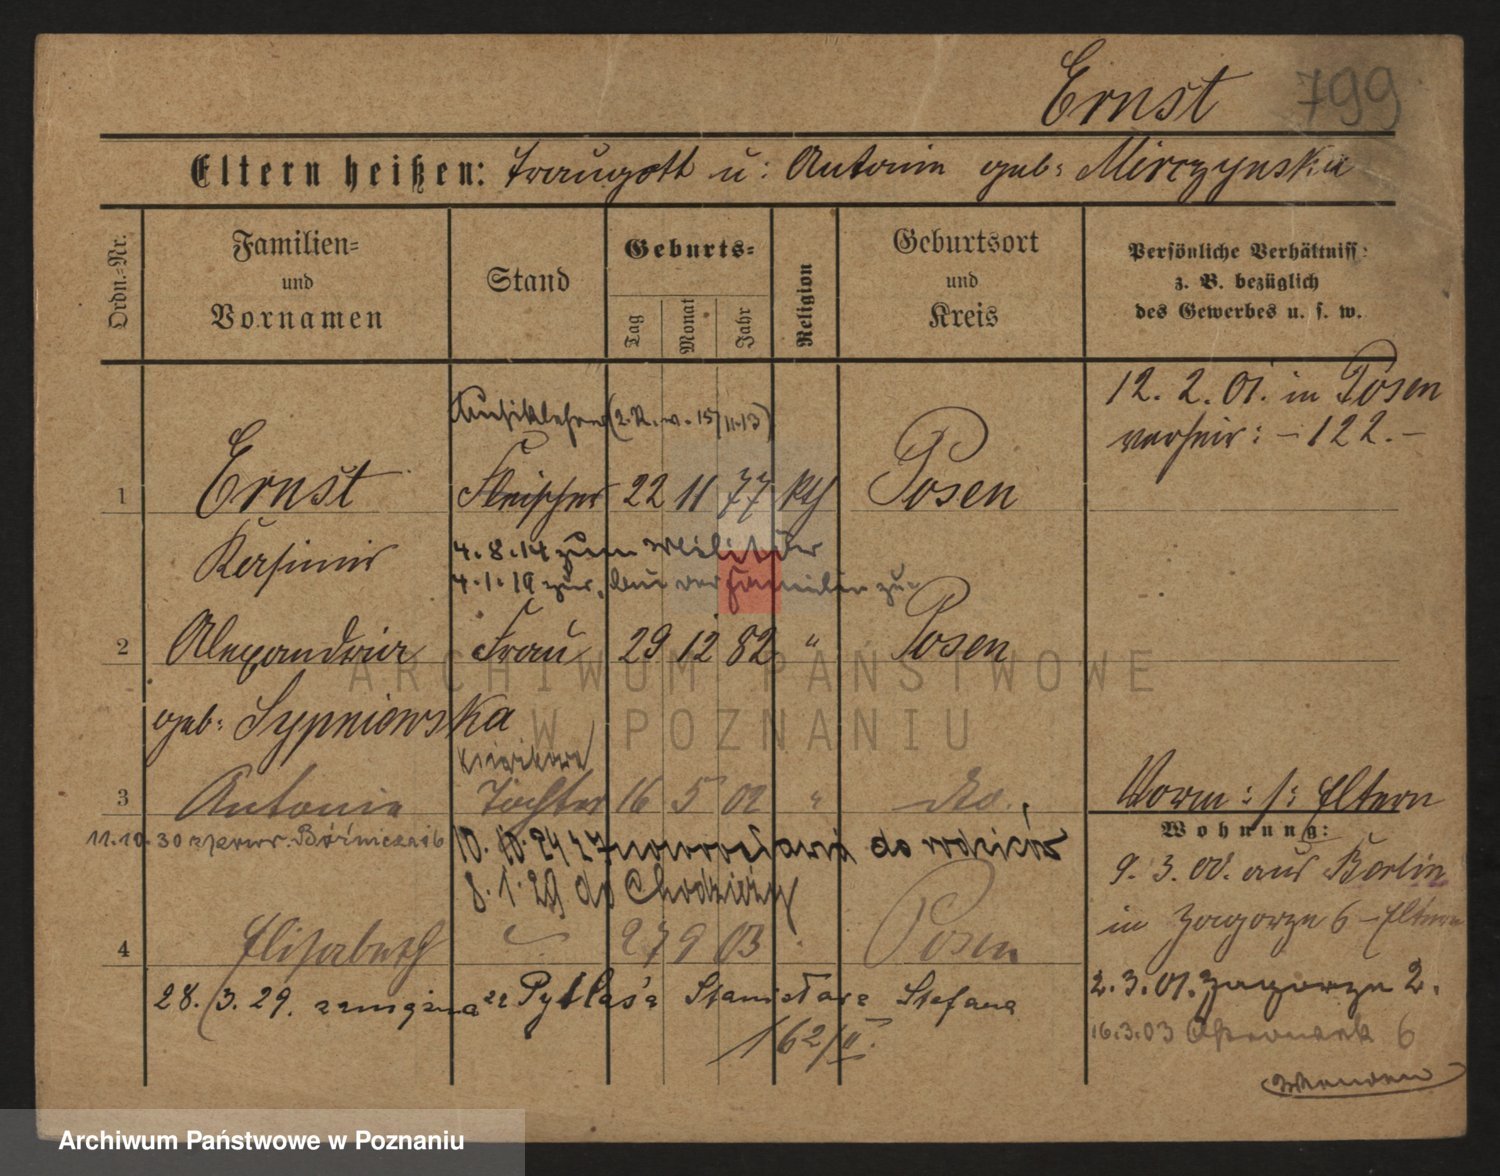 Ernst 799
Eltern heißen: Traugott u: Antonie geb: Mirczynska
Ordn.-Nr.
Familien- und Vornamen
Stand
Geburts-
Tag Monat Jahr
Religion
Geburtsort und Kreis
Persönliche Verhältniss:
z. B. bezüglich
des Gewerbes u. s. w.
Musiklehrer (2.K.v. 15/11.13)
12. 2. 01. in Posen
verheir: - 122. -
1 Ernst Fleischer 22 11 77 kth Posen
Kasimir
4.8.14 zum Militär
4.1.19 zur.
2 Alexandria Frau 29 12 82 " Posen
geb: Sypniewska
3 Antonie Tochter 16 5 02 " do.
Vorm: s: Eltern
Wohnung:
11.10.30
10.10.24 z Inowrocławia do rodziców
8.1.29 do Chodzieży
9. 3. 00. aus Berlin
in Zagorze 6 - Eltern
4 Elisabeth 27 9 03 Posen
28. /3. 29. zamężna za Pytlas'a Stanisława Stefana
162/II.
2.3.01. Zagorze 2.
16.3.03 6
Wenden
ARCHIWUM PAŃSTWOWE
W POZNANIU
Archiwum Państwowe w Poznaniu